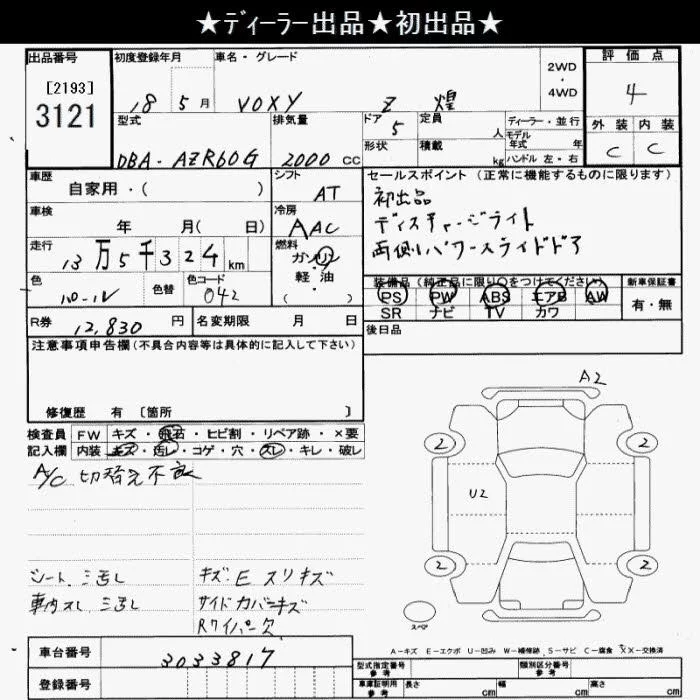 ★ディーラー出品★初出品★
出品番号 初度登録年月 車名・グレード 2WD・4WD 評価点
[2193]
3121
18 5月 VOXY Z 煌 4
型式 排気量 ドア 定員 人 ディーラー・並行 外装 内装
形状 積載 kg モデル年式 年 ハンドル 左・右
DBA-AZR60G 2000 CC 5 C C
車歴 シフト セールスポイント(正常に機能するものに限ります)
自家用・( ) AT
初出品
車検 冷房 ディスチャージライト
年 月( 日) AAC
両側パワースライドドア
走行 燃料
13万5千324km ガソリン
軽・油
( )
色 色替 色コード 042
装備品(純正品に限り○をつけてください) 新車保証書
PS PW ABS エアB AW 有・無
SR ナビ TV カワ
R券 12,830円 名変期限 月 日
後日品
注意事項申告欄(不具合内容等は具体的に記入して下さい)
修復歴 有 [箇所 ]
検査員 FW キズ・飛石・ヒビ割・リペア跡・×要
記入欄 内装 キズ・汚レ・コゲ・穴・スレ・キレ・破レ
A/C 切替え不良
シート、 キズ: E スリキズ
車内スレ、 サイドカバーキズ
Rワイパー欠
A2
2 2
U2
2 2
スペア
A-キズ E-エクボ U-凹み W-補修跡 S-サビ C-腐食 XX-交換済
車台番号 3033817
登録番号
型式指定番号 参考 類別区分番号 参考
車庫証明用 参考 長さ cm 幅 cm 高さ cm